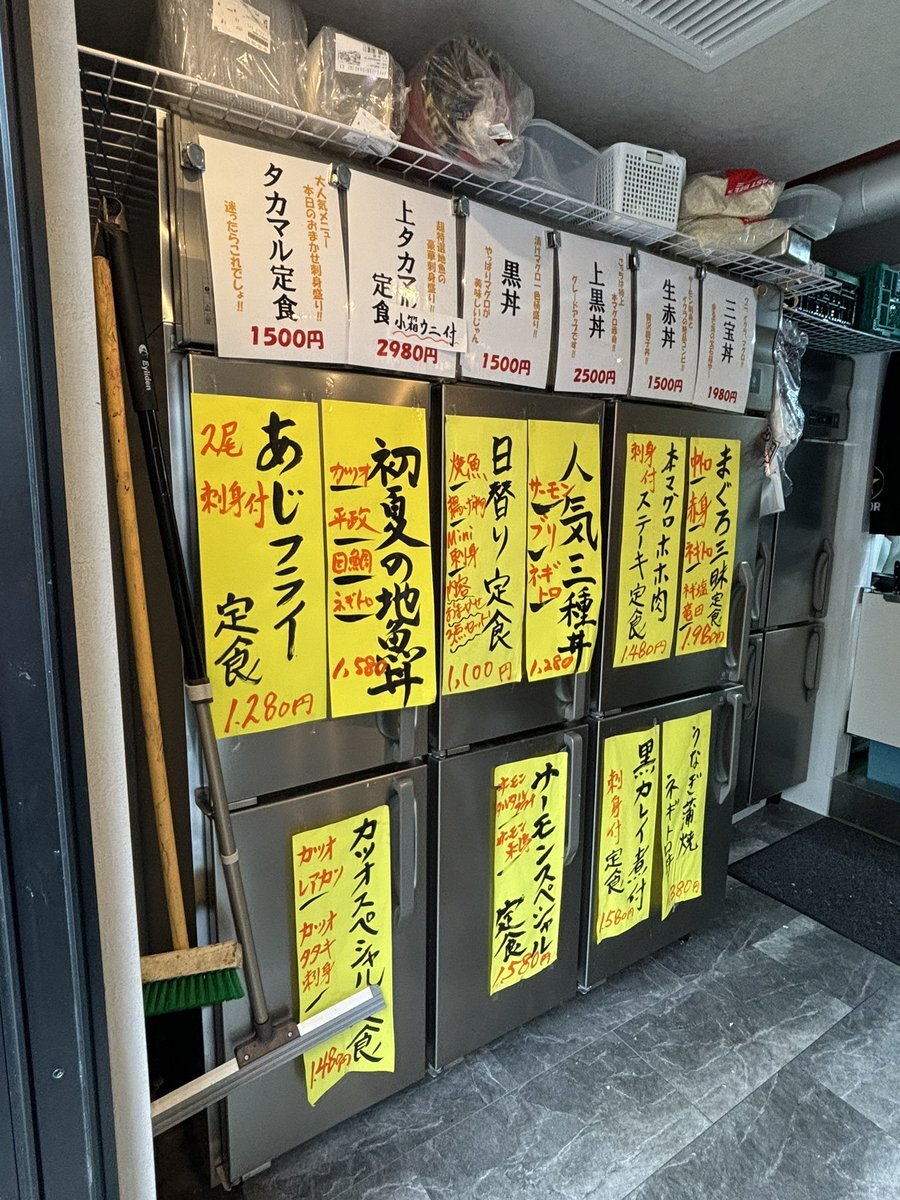 タカマル定食
大人気メニュー
本日のおまかせ刺身盛り!
迷ったらこれでしょ!!
1500円
上タカマル
定食
超特選地魚の
豪華刺身盛り!!
小箱ウニ付
2980円
黒丼
漬けマグロ一色桶盛り!!
やっぱりマグロが
美味しいじゃん
1500円
上黒丼
本マグロ
グレードアップです!!
2500円
生赤丼
1500円
三宝丼
1980円
あじフライ
定食
2尾
刺身付
1.280円
初夏の地魚丼
カツオ
平政
目鯛
ネギトロ
1,580
日替り定食
焼魚
Mini
刺身
1,100円
人気三種丼
サーモン
ブリ
ネギトロ
1,280
本マグロホホ肉
ステーキ定食
刺身付
1.480円
まぐろ三昧定食
中トロ
赤身
ネギトロ
ネギ塩
竜田
1.980円
カツオスペシャル
定食
カツオ
レアカツ
カツオ
タタキ
刺身
1.480円
サーモンスペシャル
定食
サーモン
サーモン
1.580円
黒カレイ煮付
定食
刺身付
1.580円
うなぎ蒲焼
ネギトロ
Eyliden